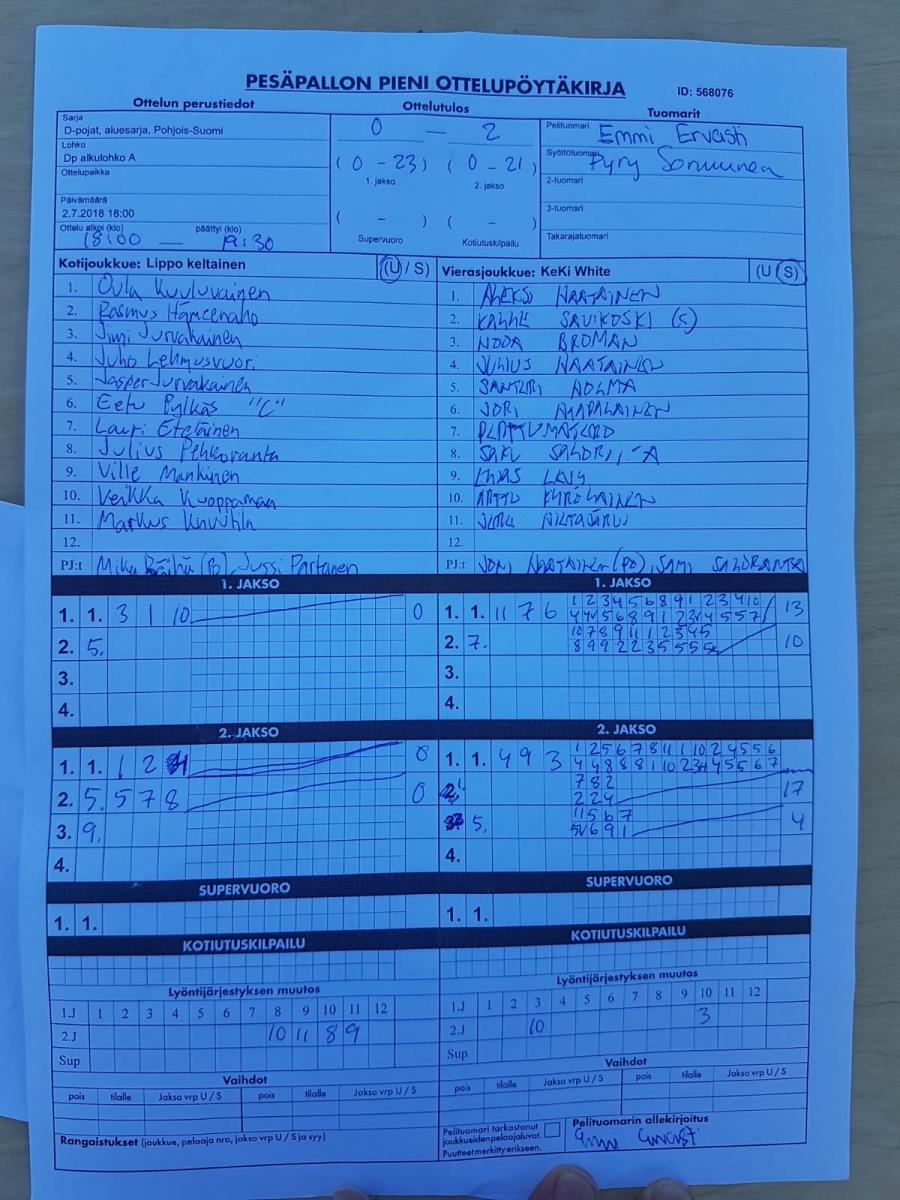 PESÄPALLON PIENI OTTELUPÖYTÄKIRJA
ID: 568076
Ottelun perustiedot
Ottelutulos
Tuomarit
Sarja
D-pojat, aluesarja, Pohjois-Suomi
Lohko
Dp alkulohko A
Ottelupaikka
Päivämäärä
2.7.2018 18:00
Ottelu alkoi (klo) päättyi (klo)
18:00 — 19:30
0 — 2
(0 - 23) (0 - 21)
1. jakso 2. jakso
( - ) ( - )
Supervuoro Kotiutuskilpailu
Pelituomari Emmi Ervasti
Syöttötuomari Pyry
2-tuomari
3-tuomari
Takarajatuomari
Kotijoukkue: Lippo keltainen (U / S)
1. Oula Kuuluvainen
2. Rasmus
3. Jimi Jurvakainen
4. Juho Lehmusvuori
5. Jasper Jurvakainen
6. Eetu Pylkäs "C"
7. Lauri Eteläinen
8. Julius Pehkoranta
9. Ville Mankinen
10. Veikka Kuoppamaa
11. Markus Knuutila
12.
PJ:t Mika (PJ), Jussi Partanen
Vierasjoukkue: KeKi White (U / S)
1. ALEKSI HAATAINEN
2. KALLE SAVIKOSKI (S)
3. NOOA BROMAN
4. JULIUS HAATAINEN
5. SANTERI HOLMA
6. JORI
7.
8. SAKU
9.
10. ARTTU KYRÖLÄINEN
11.
12.
PJ:t JONI HAATAINEN (PJ), SAMI SALORANTA
1. JAKSO
1. 1. 3 1 10 0
2. 5.
3.
4.
1. JAKSO
1. 1. 11 7 6 1 2 3 4 5 6 8 9 1 2 3 4 10 13
2. 7. 10 7 8 9 11 1 2 3 4 5 10
8 9 9 2 2 3 5 5 5 5
3.
4.
2. JAKSO
1. 1. 1 2 0
2. 5. 5 7 8 0
3. 9.
4.
2. JAKSO
1. 1. 4 9 3 1 2 5 6 7 8 11 1 10 2 4 5 5 6
7 8 2 17
2 2 4
5. 11 5 6 7 4
4.
SUPERVUORO
1. 1.
SUPERVUORO
1. 1.
KOTIUTUSKILPAILU
KOTIUTUSKILPAILU
Lyöntijärjestyksen muutos
1.J 1 2 3 4 5 6 7 8 9 10 11 12
2.J 10 11 8 9
Sup
Lyöntijärjestyksen muutos
1.J 1 2 3 4 5 6 7 8 9 10 11 12
2.J 10 3
Sup
Vaihdot
pois tilalle Jakso vrp U / S pois tilalle Jakso vrp U / S
Vaihdot
pois tilalle Jakso vrp U / S pois tilalle Jakso vrp U / S
Rangaistukset (joukkue, pelaaja nro, jakso vrp U / S ja syy)
Pelituomari tarkastanut
joukkueidenpelaajaluvat.
Puutteetmerkittyerikseen.
Pelituomarin allekirjoitus
Emmi Ervasti